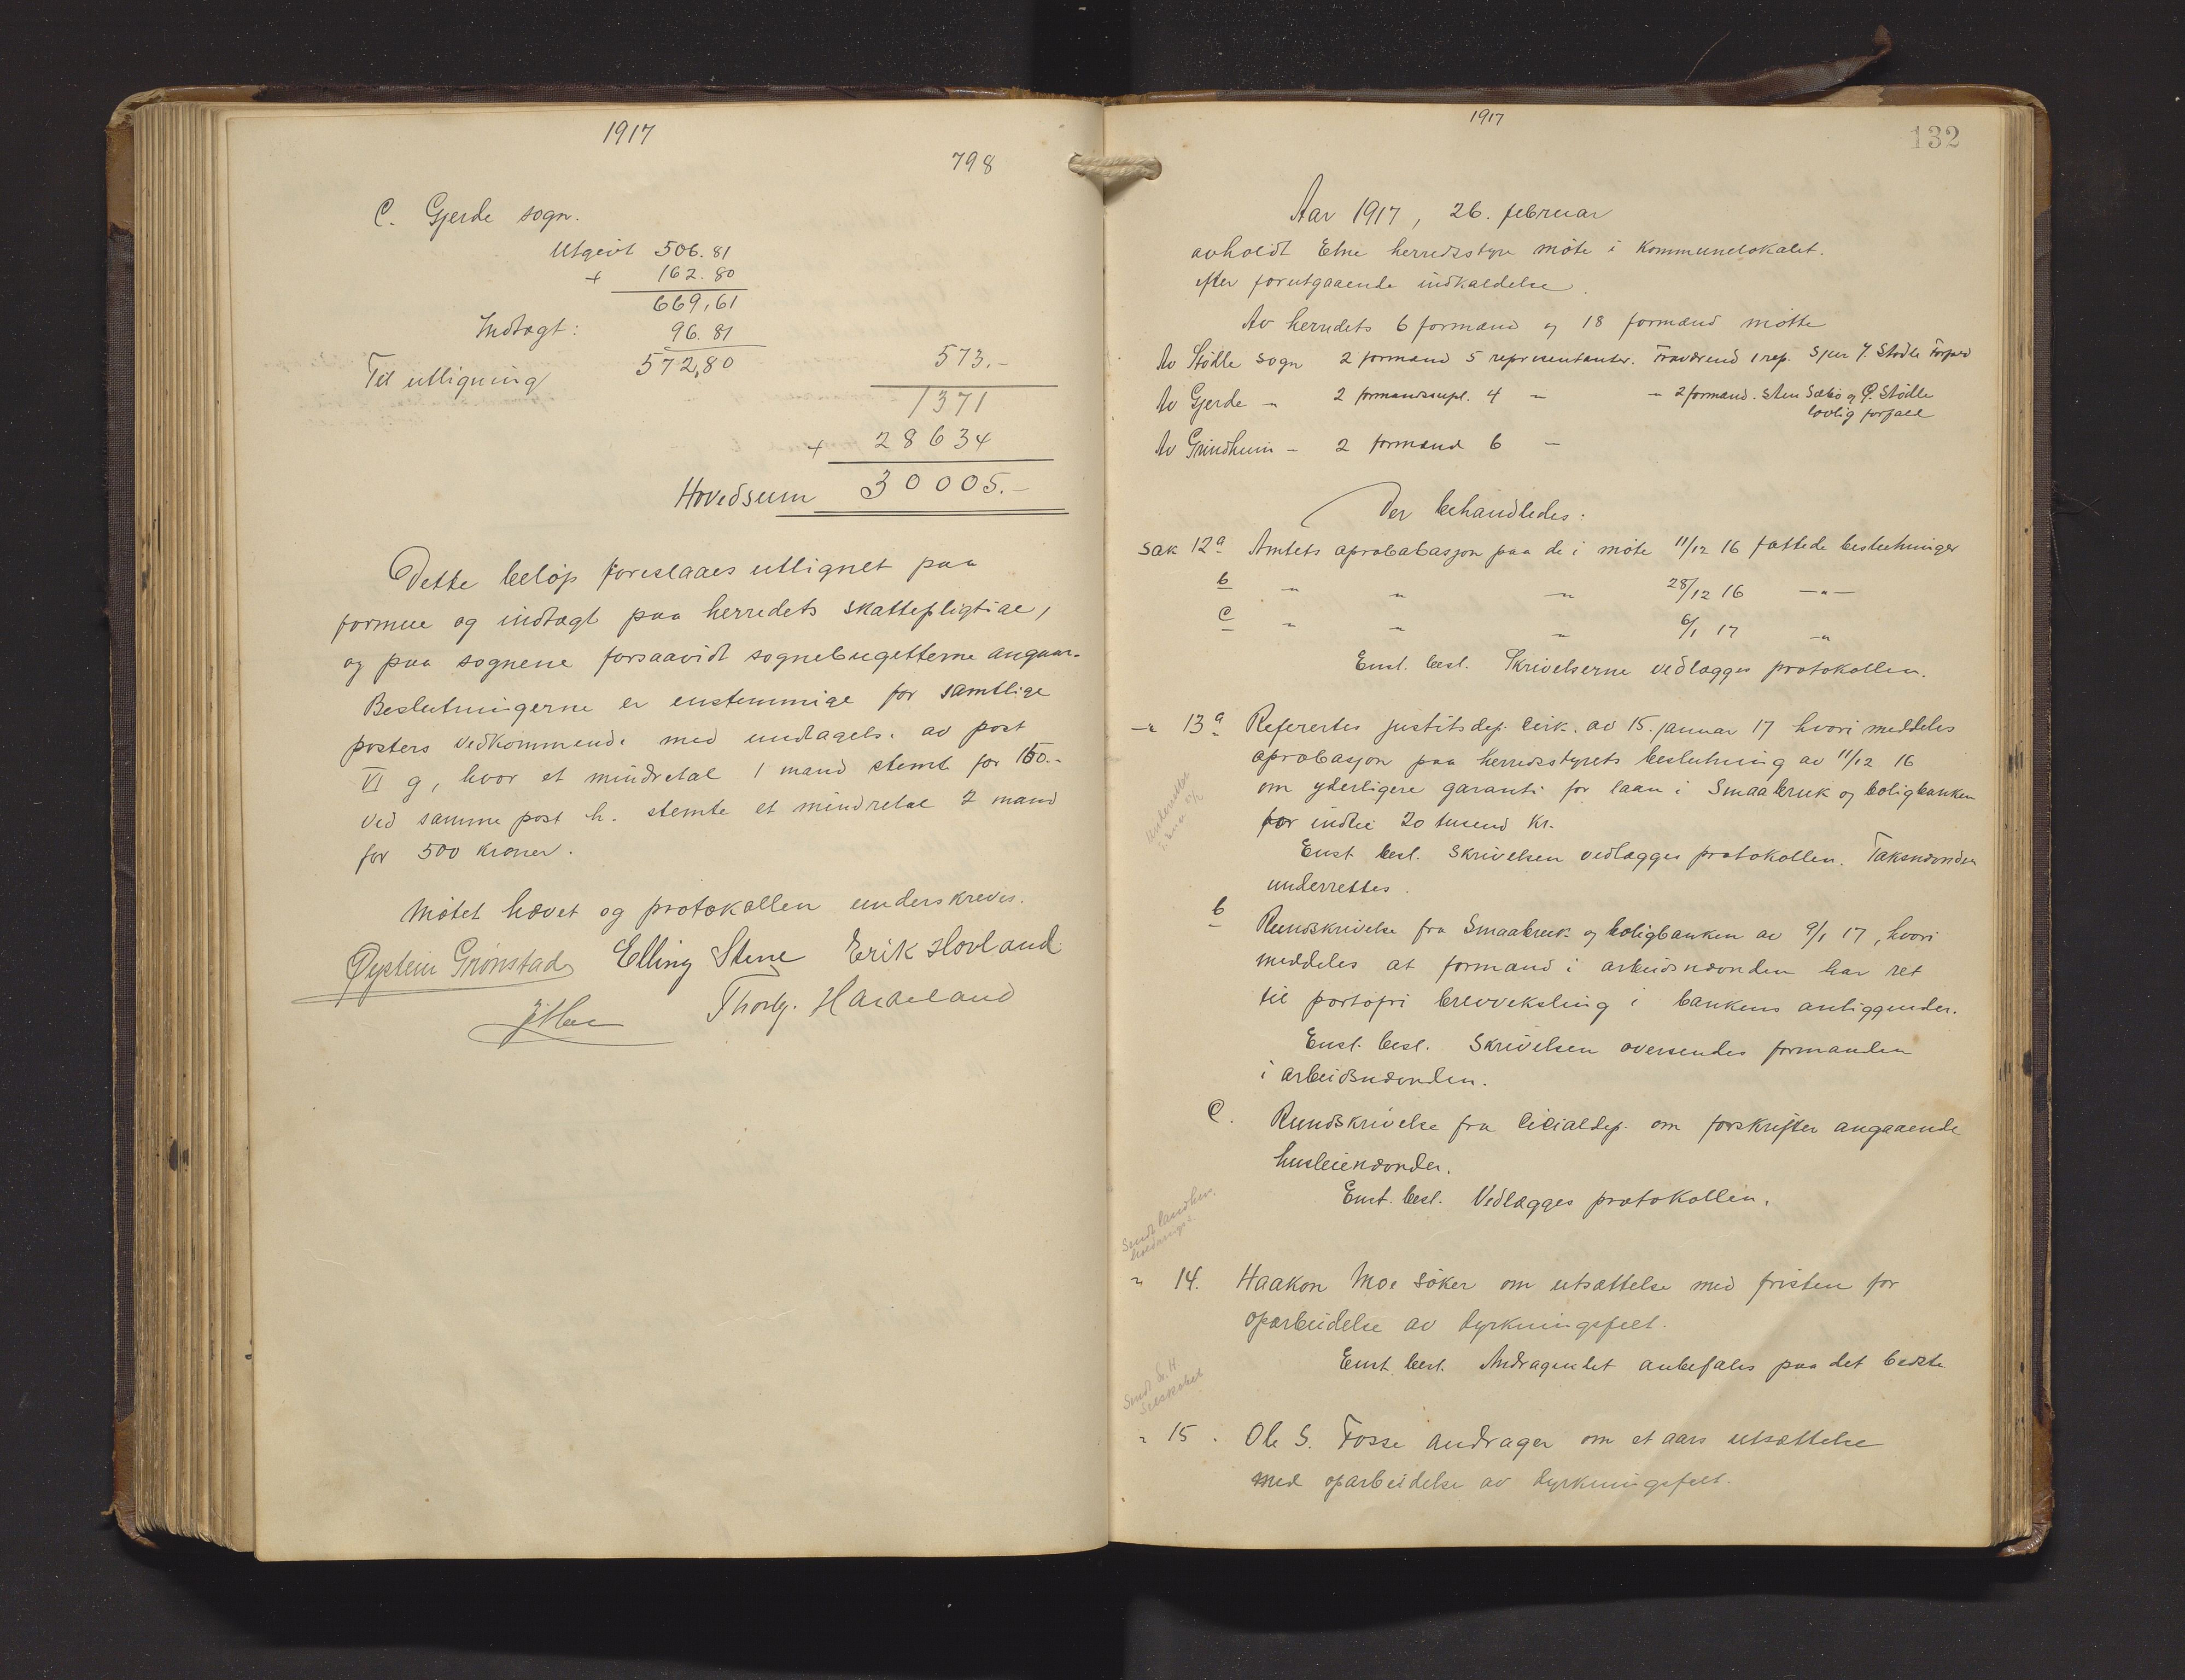 1917
798
C. Gjerde sogn.
Utgivt 506.81
+ 162.80
669,61
Indtægt: 96.81
Til utligning 572,80 573.-
1371
+ 28634
Hovedsum 30005.-
Dette beløp foreslaaes utlignet paa
formue og indtægt paa herredets skattepligtige,
og paa sognene forsaavidt sognebugetterne angaar.
Beslutningerne er enstemmige for samtlige
posters vedkommende med undtagelse av post
VI g, hvor et mindretal 1 mand stemte for 150.-
ved samme post h. stemte et mindretal 2 mand
for 500 kroner.
Møtet hævet og protokollen underskreves.
Øystein Grønstad Elling Stene Erik Hovland
Thorbj. Haaland
1917
132
Aar 1917, 26. februar
avholdt Etne herredsstyre møte i kommunelokalet.
efter forutgaaende indkaldelse.
Av herredets 6 formænd og 18 formænd møtte
Av Stødle sogn 2 formænd 5 representanter. Fraværend 1 rep. Sjur J. Stødle Forfald
Av Gjerde " 2 formandsupl. 4 " " 2 formænd. Sten Sæbø og P. Stødle
lovlig forfald
Av Grindheim " 2 formænd 6 "
Der behandledes:
Sak 12 a Amtets aprobabasjon paa de i møte 11/12 16 fattede beslutninger
b " " " 28/12 16 -"-
c " " " 6/1 17 -"
Enst. besl. Skrivelserne vedlægges protokollen.
-" 13 a Referertes justitsdep. cirk. av 15. januar 17 hvori meddeles
aprobasjon paa herredsstyrets beslutning av 11/12 16
om yderligere garanti for laan i Smaabruk og boligbanken
for indtil 20 tusend kr.
Enst. besl. Skrivelsen vedlægges protokollen. Takstnævnden
underrettes.
b Rundskrivelse fra Smaabruk og boligbanken av 9/1 17, hvori
meddeles at formand i arbeidsnævnden har ret
til portofri brevveksling i bankens anliggender.
Enst. besl. Skrivelsen oversendes formanden
i arbeidsnævnden.
C. Rundskrivelse fra Cicialdep. om forskrifter angaaende
husleienævnder.
Enst. besl. Vedlægges protokollen.
" 14. Haakon Moe søker om utsættelse med fristen for
oparbeidelse av dyrkningsfelt.
Enst. besl. Andragendet anbefales paa det bedste
Sendt L. H
Selskabet
" 15. Ole S. Fosse andrager om et aars utsættelse
med oparbeidelse av dyrkningsfelt.